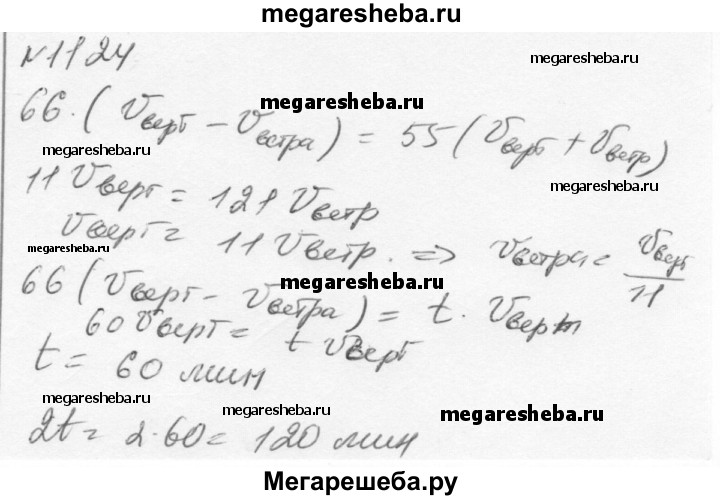 megaresheba.ru
N1124
megaresheba.ru
66·(Vверт − Vветра) = 55(Vверт + Vветр)
megaresheba.ru
megaresheba.ru
megaresheba.ru
11Vверт = 121Vветр
Vверт = 11Vветр. => Vветра = Vверт/11
megaresheba.ru
megaresheba.ru
66(Vверт − Vветра) = t·Vверт
60Vверт = tVверт
t = 60 мин
megaresheba.ru
megaresheba.ru
megaresheba.ru
2t = 2·60 = 120 мин
Мегарешеба.ру